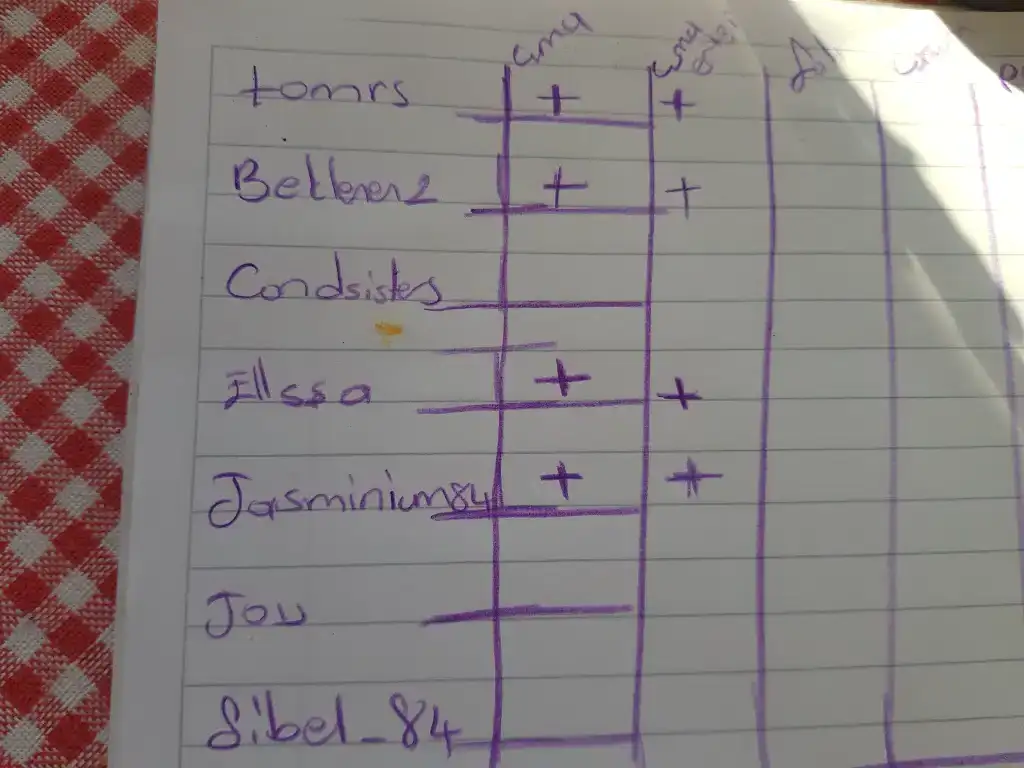 cuma cuma
tomrs + +
Beklenen2 + +
Condsisters
Ellssa + +
Jasminium84 + +
Jou
Sibel_84